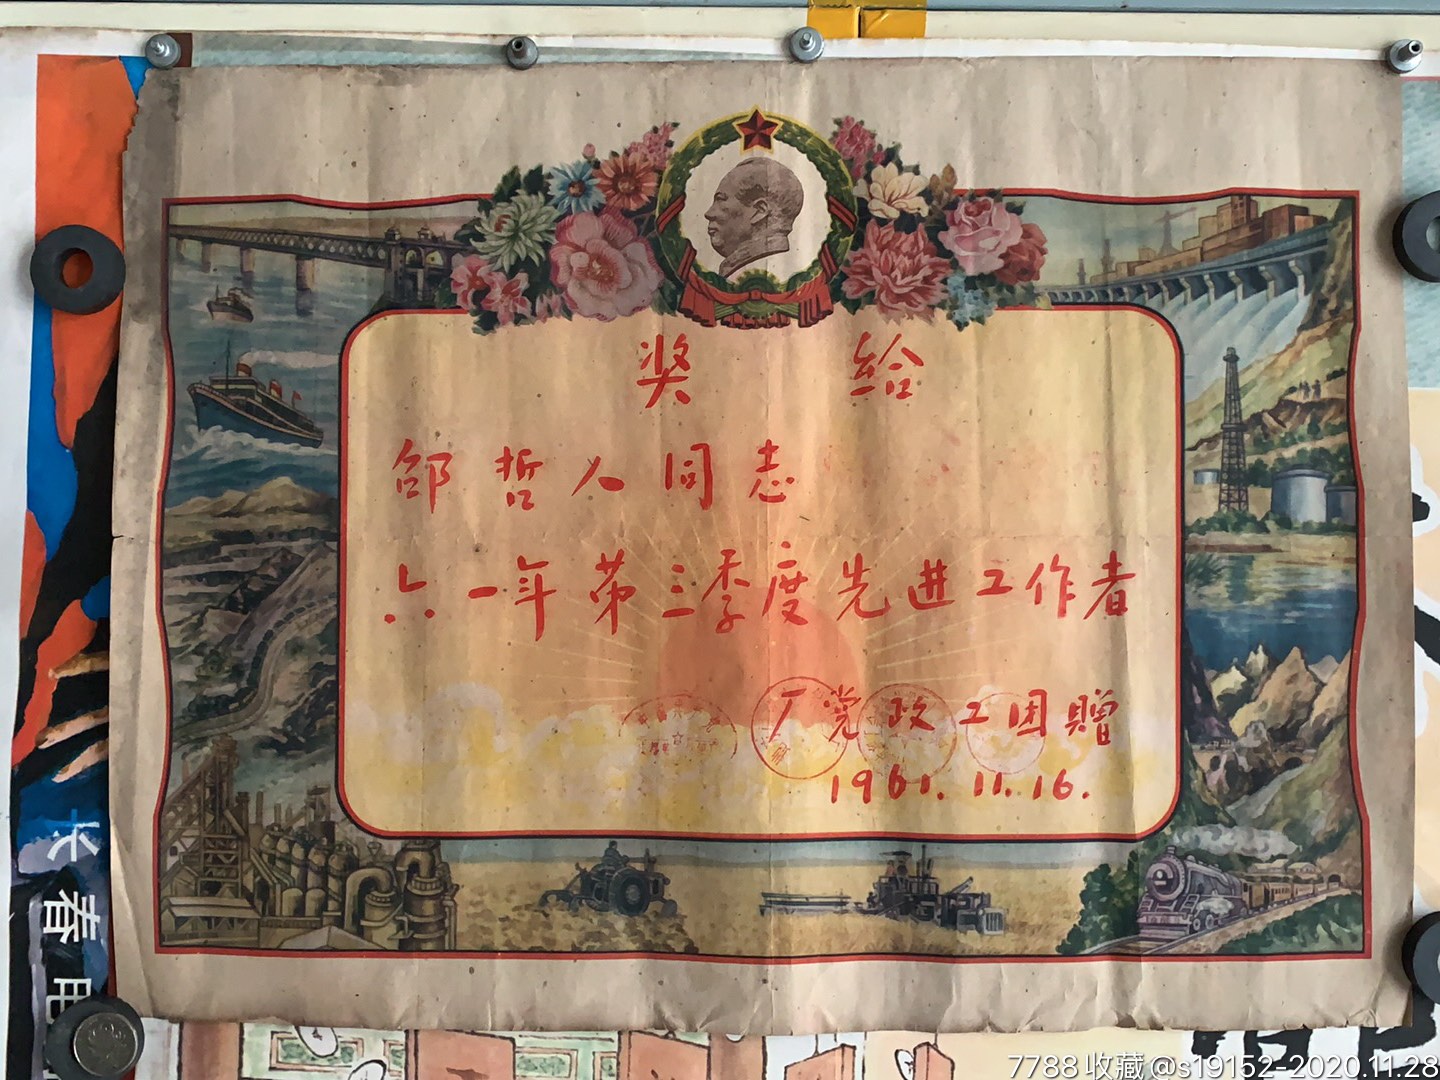 奖 给
邰哲人同志
六一年第三季度先进工作者
厂党政工团赠
1961.11.16.
长春电
7788收藏@s19152-2020.11.28